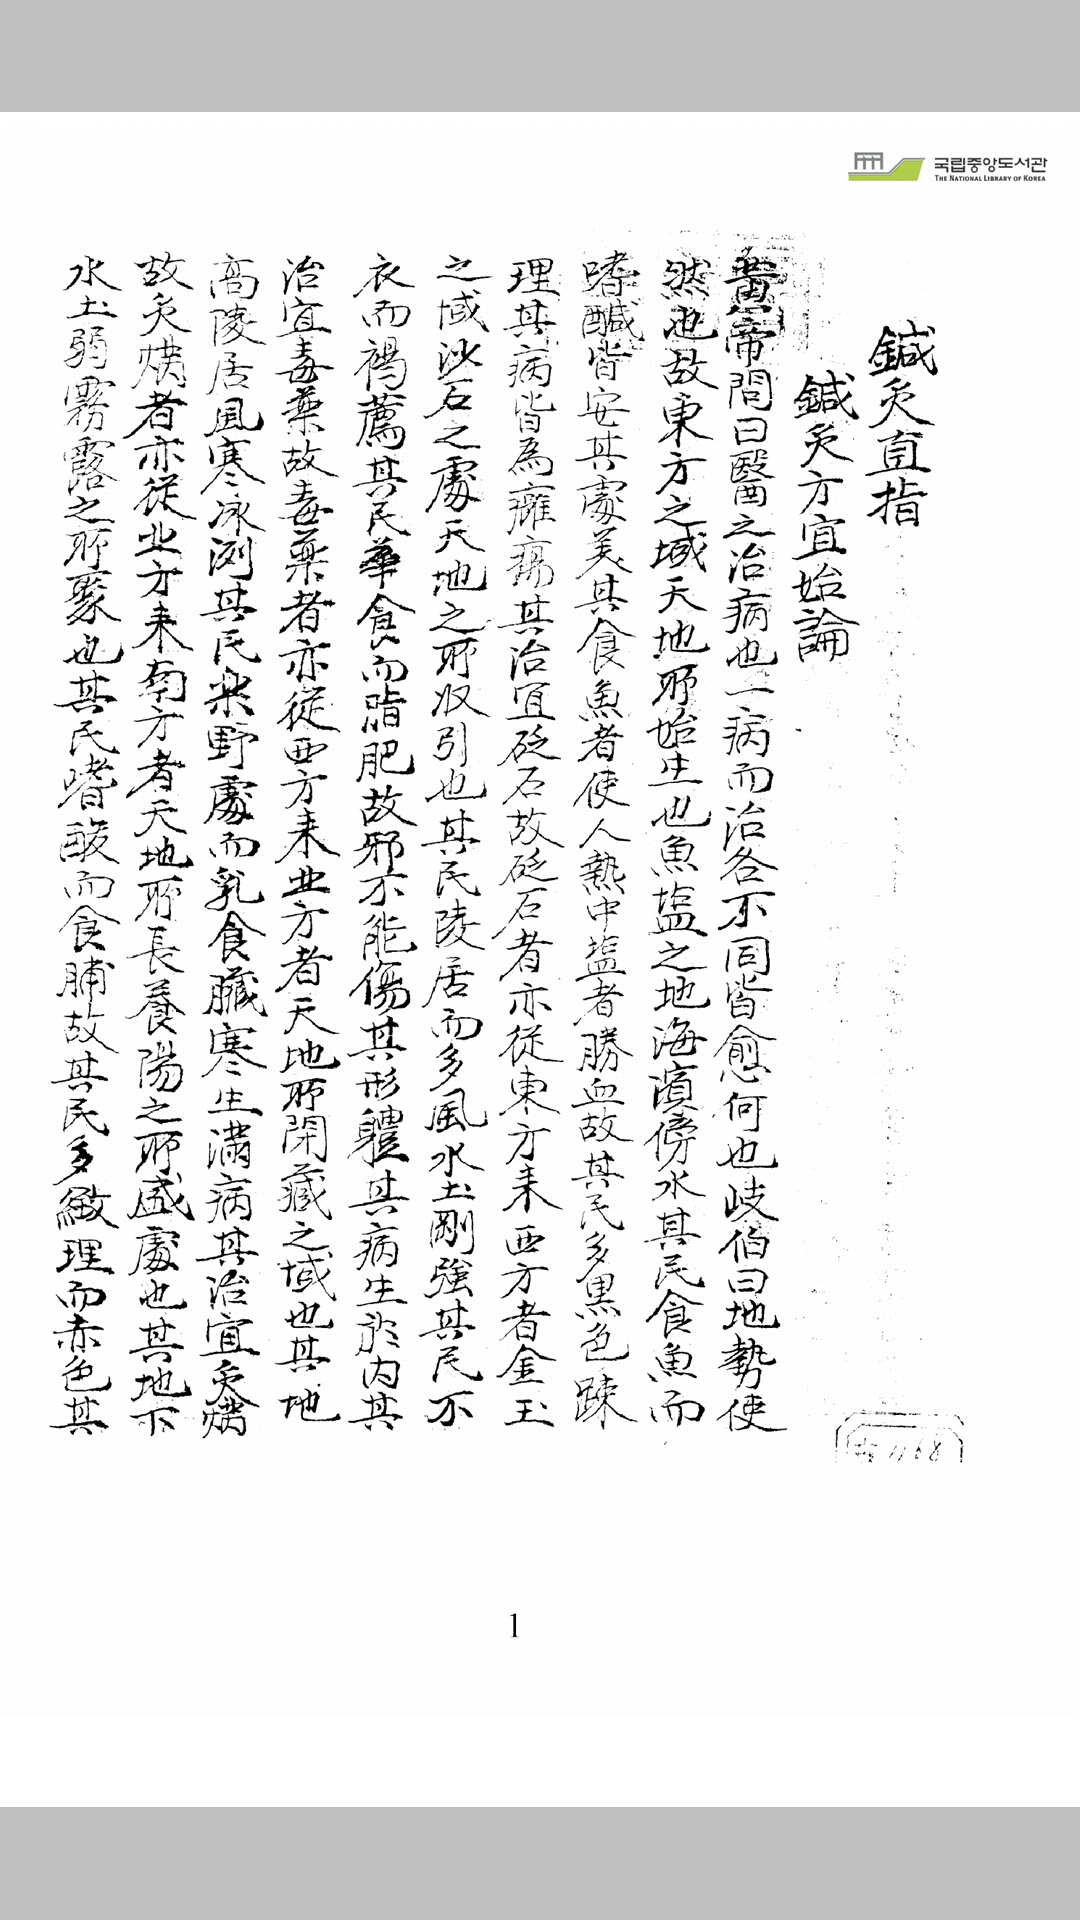 국립중앙도서관
THE NATIONAL LIBRARY OF KOREA
鍼灸直指
鍼灸方宜始論
黃帝問曰醫之治病也一病而治各不同皆愈何也岐伯曰地勢使
然也故東方之域天地所始生也魚塩之地海濱傍水其民食魚而
嗜鹹皆安其處美其食魚者使人熱中塩者勝血故其民多黑色踈
理其病皆為癰瘍其治宜砭石故砭石者亦從東方来西方者金玉
之域沙石之處天地之所収引也其民陵居而多風水土剛強其民不
衣而褐薦其民華食而脂肥故邪不能傷其形軆其病生於內其
治宜毒藥故毒藥者亦從西方来北方者天地所閉藏之域也其地
高陵居風寒冰冽其民楽野處而乳食臟寒生滿病其治宜灸焫
故灸焫者亦從北方来南方者天地所長養陽之所盛處也其地下
水土弱霧露之所聚也其民嗜酸而食胕故其民多緻理而赤色其
1